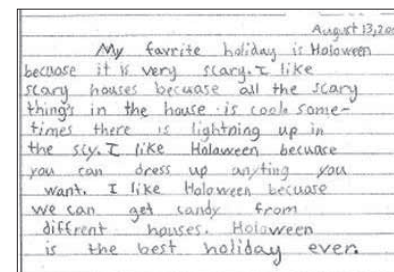 August 13,20
My favrite holiday is Holoween
becuose it is very scary. I like
scary houses becuase all the scary
thing's in the house is coole some-
times there is lightning up in
the scy. I like Holaween becuase
you can dress up anyting you
want. I like Holoween becuase
we can get candy from
diffrent houses. Holoween
is the best holiday ever.